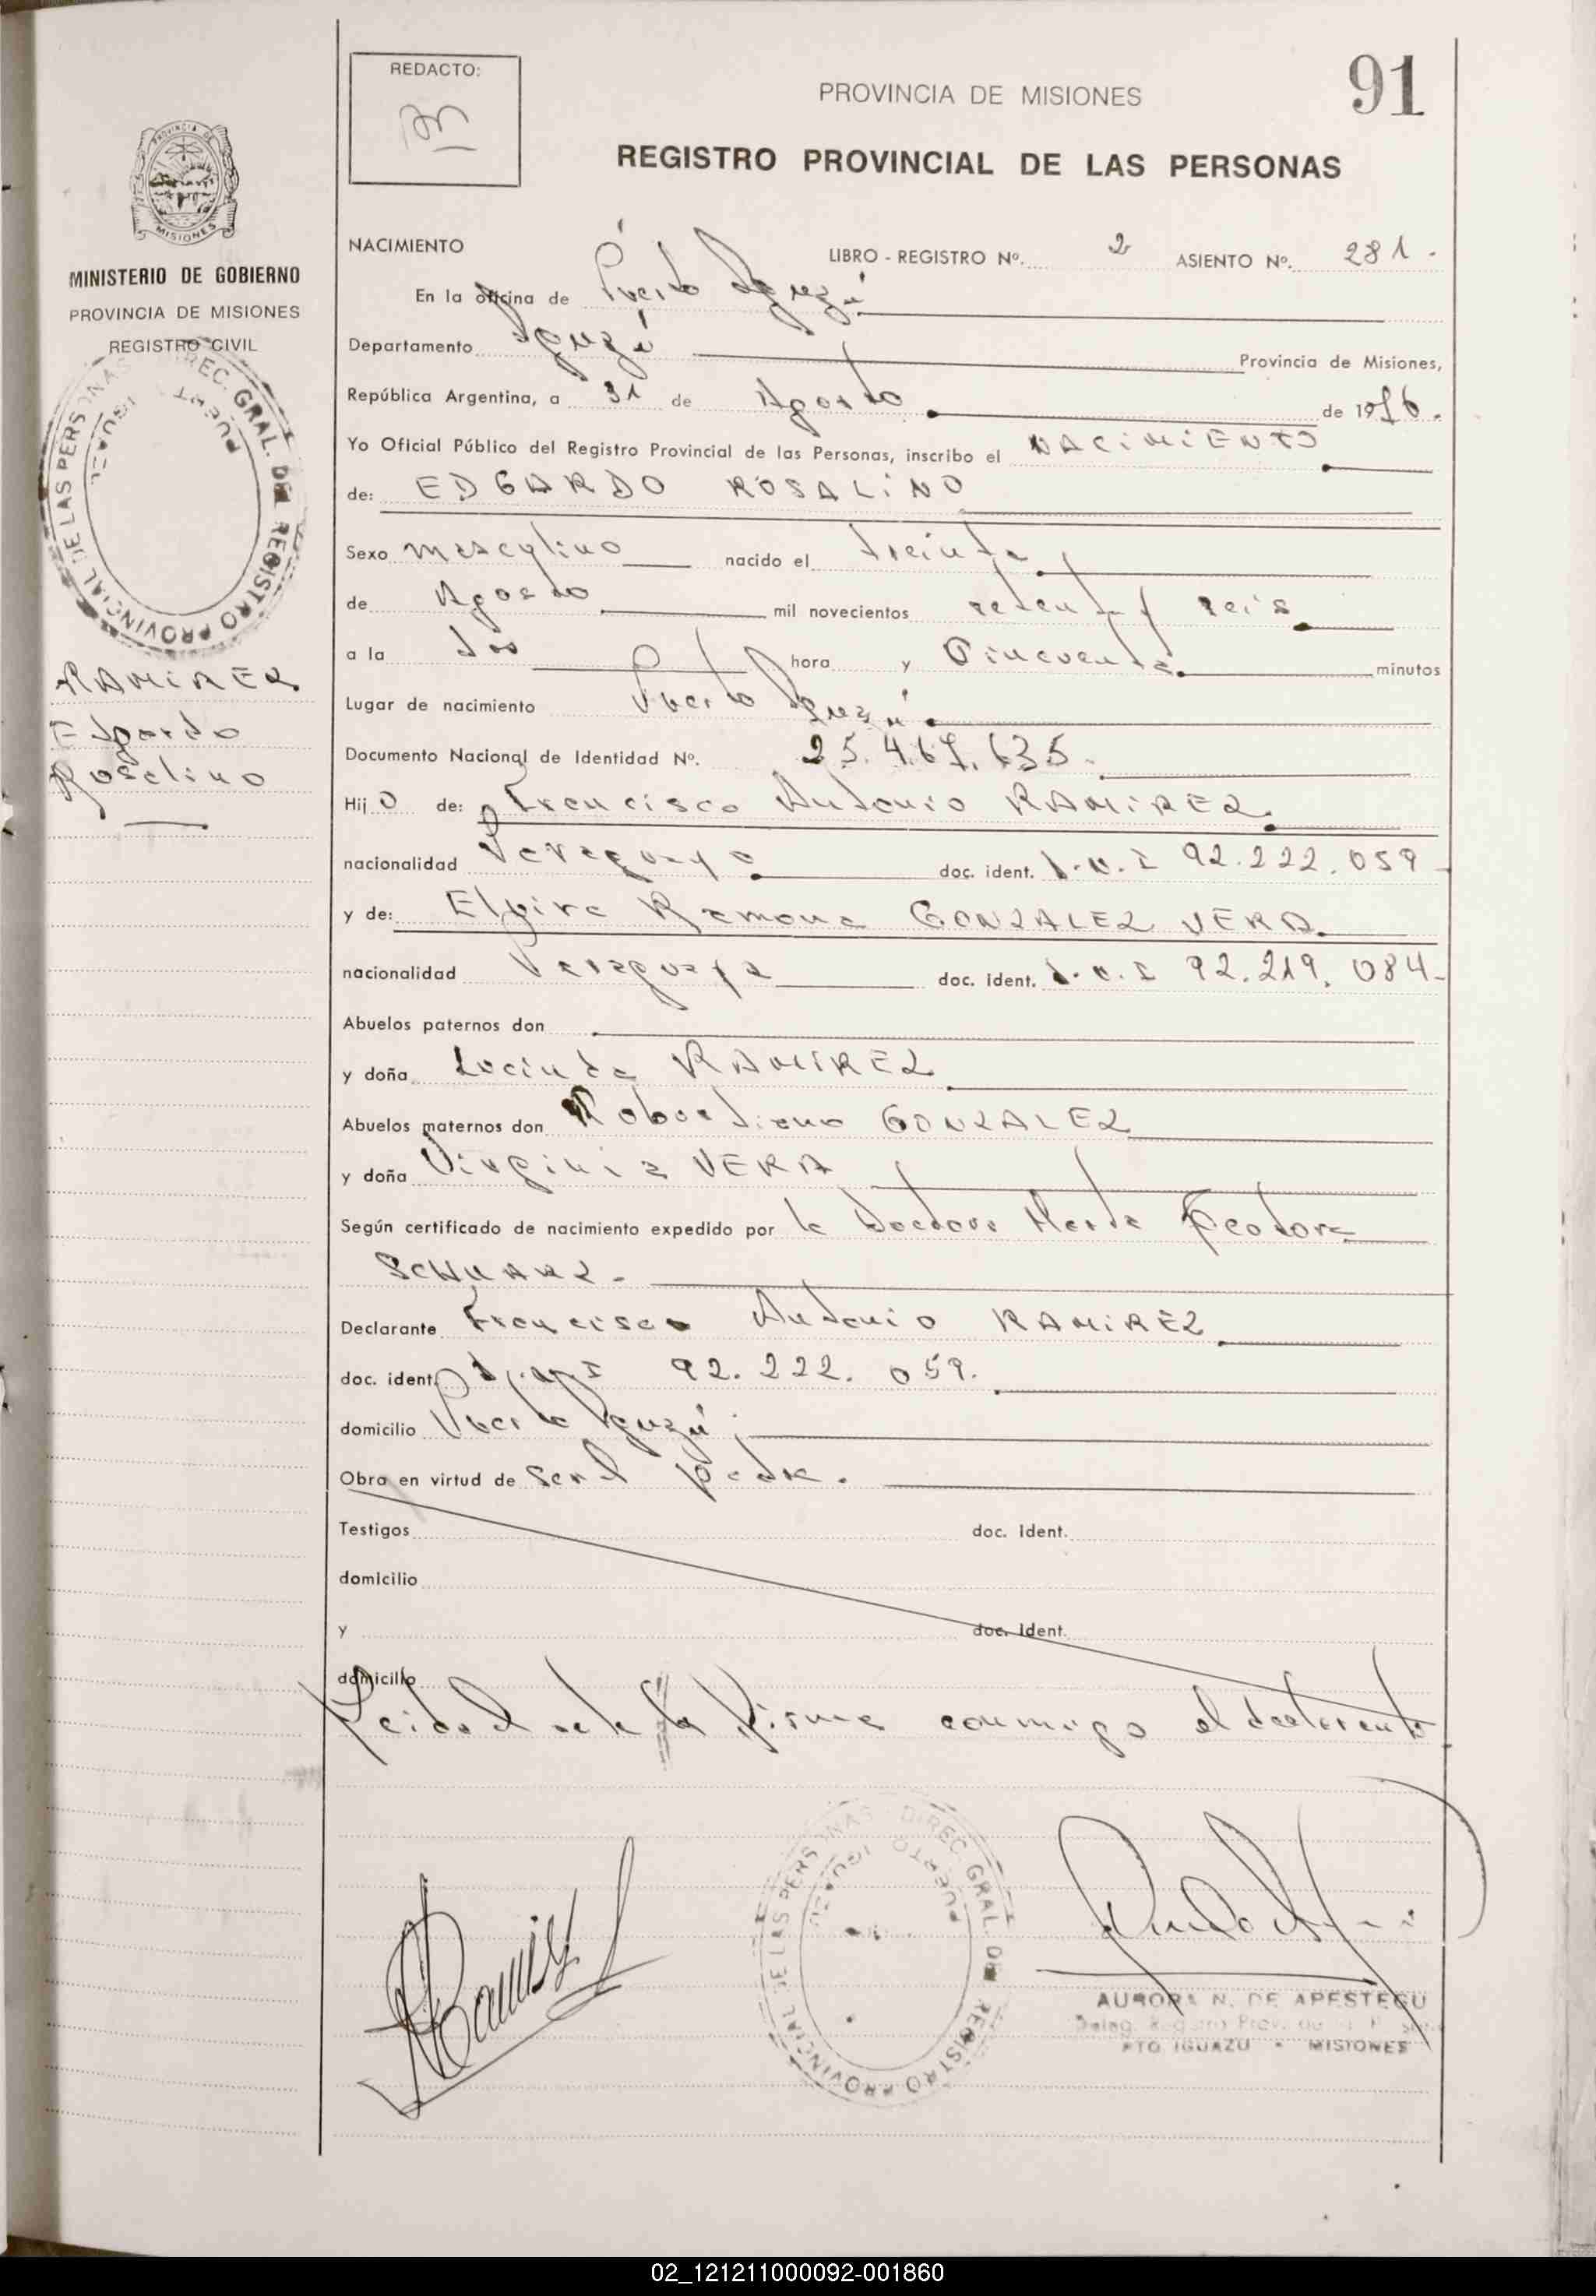 REDACTO:
PROVINCIA DE MISIONES
91
REGISTRO PROVINCIAL DE LAS PERSONAS
PROVINCIA DE
MISIONES
MINISTERIO DE GOBIERNO
PROVINCIA DE MISIONES
REGISTRO CIVIL
DIREC. GRAL. DEL REGISTRO PROVINCIAL DE LAS PERSONAS
PUERTO IGUAZU
RAMIREZ
Edgardo
Rosalino
NACIMIENTO LIBRO - REGISTRO Nº. 2 ASIENTO Nº. 281.
En la oficina de Puerto Iguazú
Departamento Iguazú Provincia de Misiones,
República Argentina, a 31 de Agosto de 1976.
Yo Oficial Público del Registro Provincial de las Personas, inscribo el NACIMIENTO
de: EDGARDO ROSALINO
Sexo masculino nacido el treinta
de Agosto mil novecientos setenta y seis
a la dos hora y Cincuenta minutos
Lugar de nacimiento Puerto Iguazú
Documento Nacional de Identidad Nº. 25.467.635.
Hijo de: Francisco Antonio RAMIREZ
nacionalidad Paraguayo doc. ident. D.N.I 92.222.059-
y de: Elvira Ramona GONZALEZ VERA
nacionalidad Paraguaya doc. ident. D.N.I 92.219.084-
Abuelos paternos don
y doña Lucinda RAMIREZ
Abuelos maternos don Robustiano GONZALEZ
y doña Virginia VERA
Según certificado de nacimiento expedido por la Doctora Marta Teodora
SCHWARZ-
Declarante Francisco Antonio RAMIREZ
doc. ident. D.N.I 92.222.059.
domicilio Puerto Iguazú
Obra en virtud de ser el padre.
Testigos doc. Ident.
domicilio
y doc. Ident.
domicilio
Leida el acta la firma conmigo el declarante
Ramirez
DIREC. GRAL. DEL REGISTRO PROVINCIAL DE LAS PERSONAS
PUERTO IGUAZU
AURORA N. DE APESTEGU
Deleg. Registro Prov. de
PTO. IGUAZU - MISIONES
02_121211000092-001860